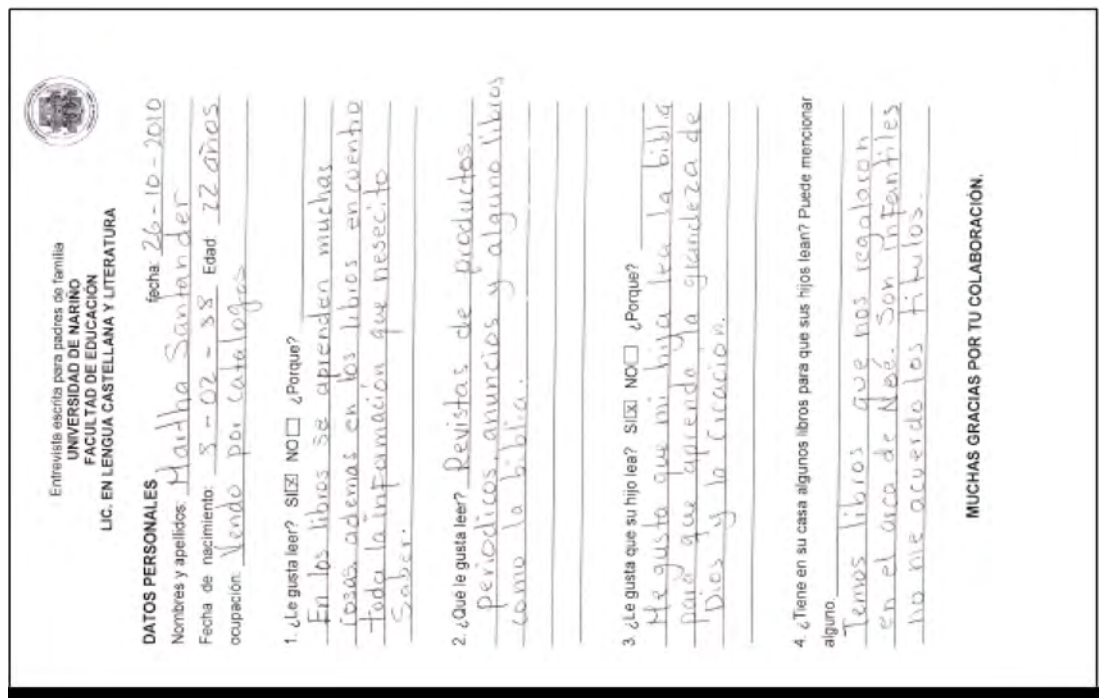 Entrevista escrita para padres de familia
UNIVERSIDAD DE NARIÑO
FACULTAD DE EDUCACIÓN
LIC. EN LENGUA CASTELLANA Y LITERATURA
DATOS PERSONALES fecha: 26-10-2010
Nombres y apellidos: Martha Santander
Fecha de nacimiento: 3-02-38 Edad 22 años
ocupación: Vendo por catalogos
1. ¿Le gusta leer? SI☒ NO☐ ¿Porque?
En los libros se aprenden muchas
cosas, ademas en los libros encuentro
toda la información que nesecito
saber.
2. ¿Qué le gusta leer? Revistas de productos,
periodicos, anuncios y alguno libros
como la biblia.
3. ¿Le gusta que su hijo lea? SI☒ NO☐ ¿Porque?
Me gusta que mi hija lea la biblia
para que aprenda la grandeza de
Dios y la Creación.
4. ¿Tiene en su casa algunos libros para que sus hijos lean? Puede mencionar
alguno.
Temos libros que nos regalaron
en el arca de Noé. Son infantiles
no me acuerdo los titulos.
MUCHAS GRACIAS POR TU COLABORACIÓN.